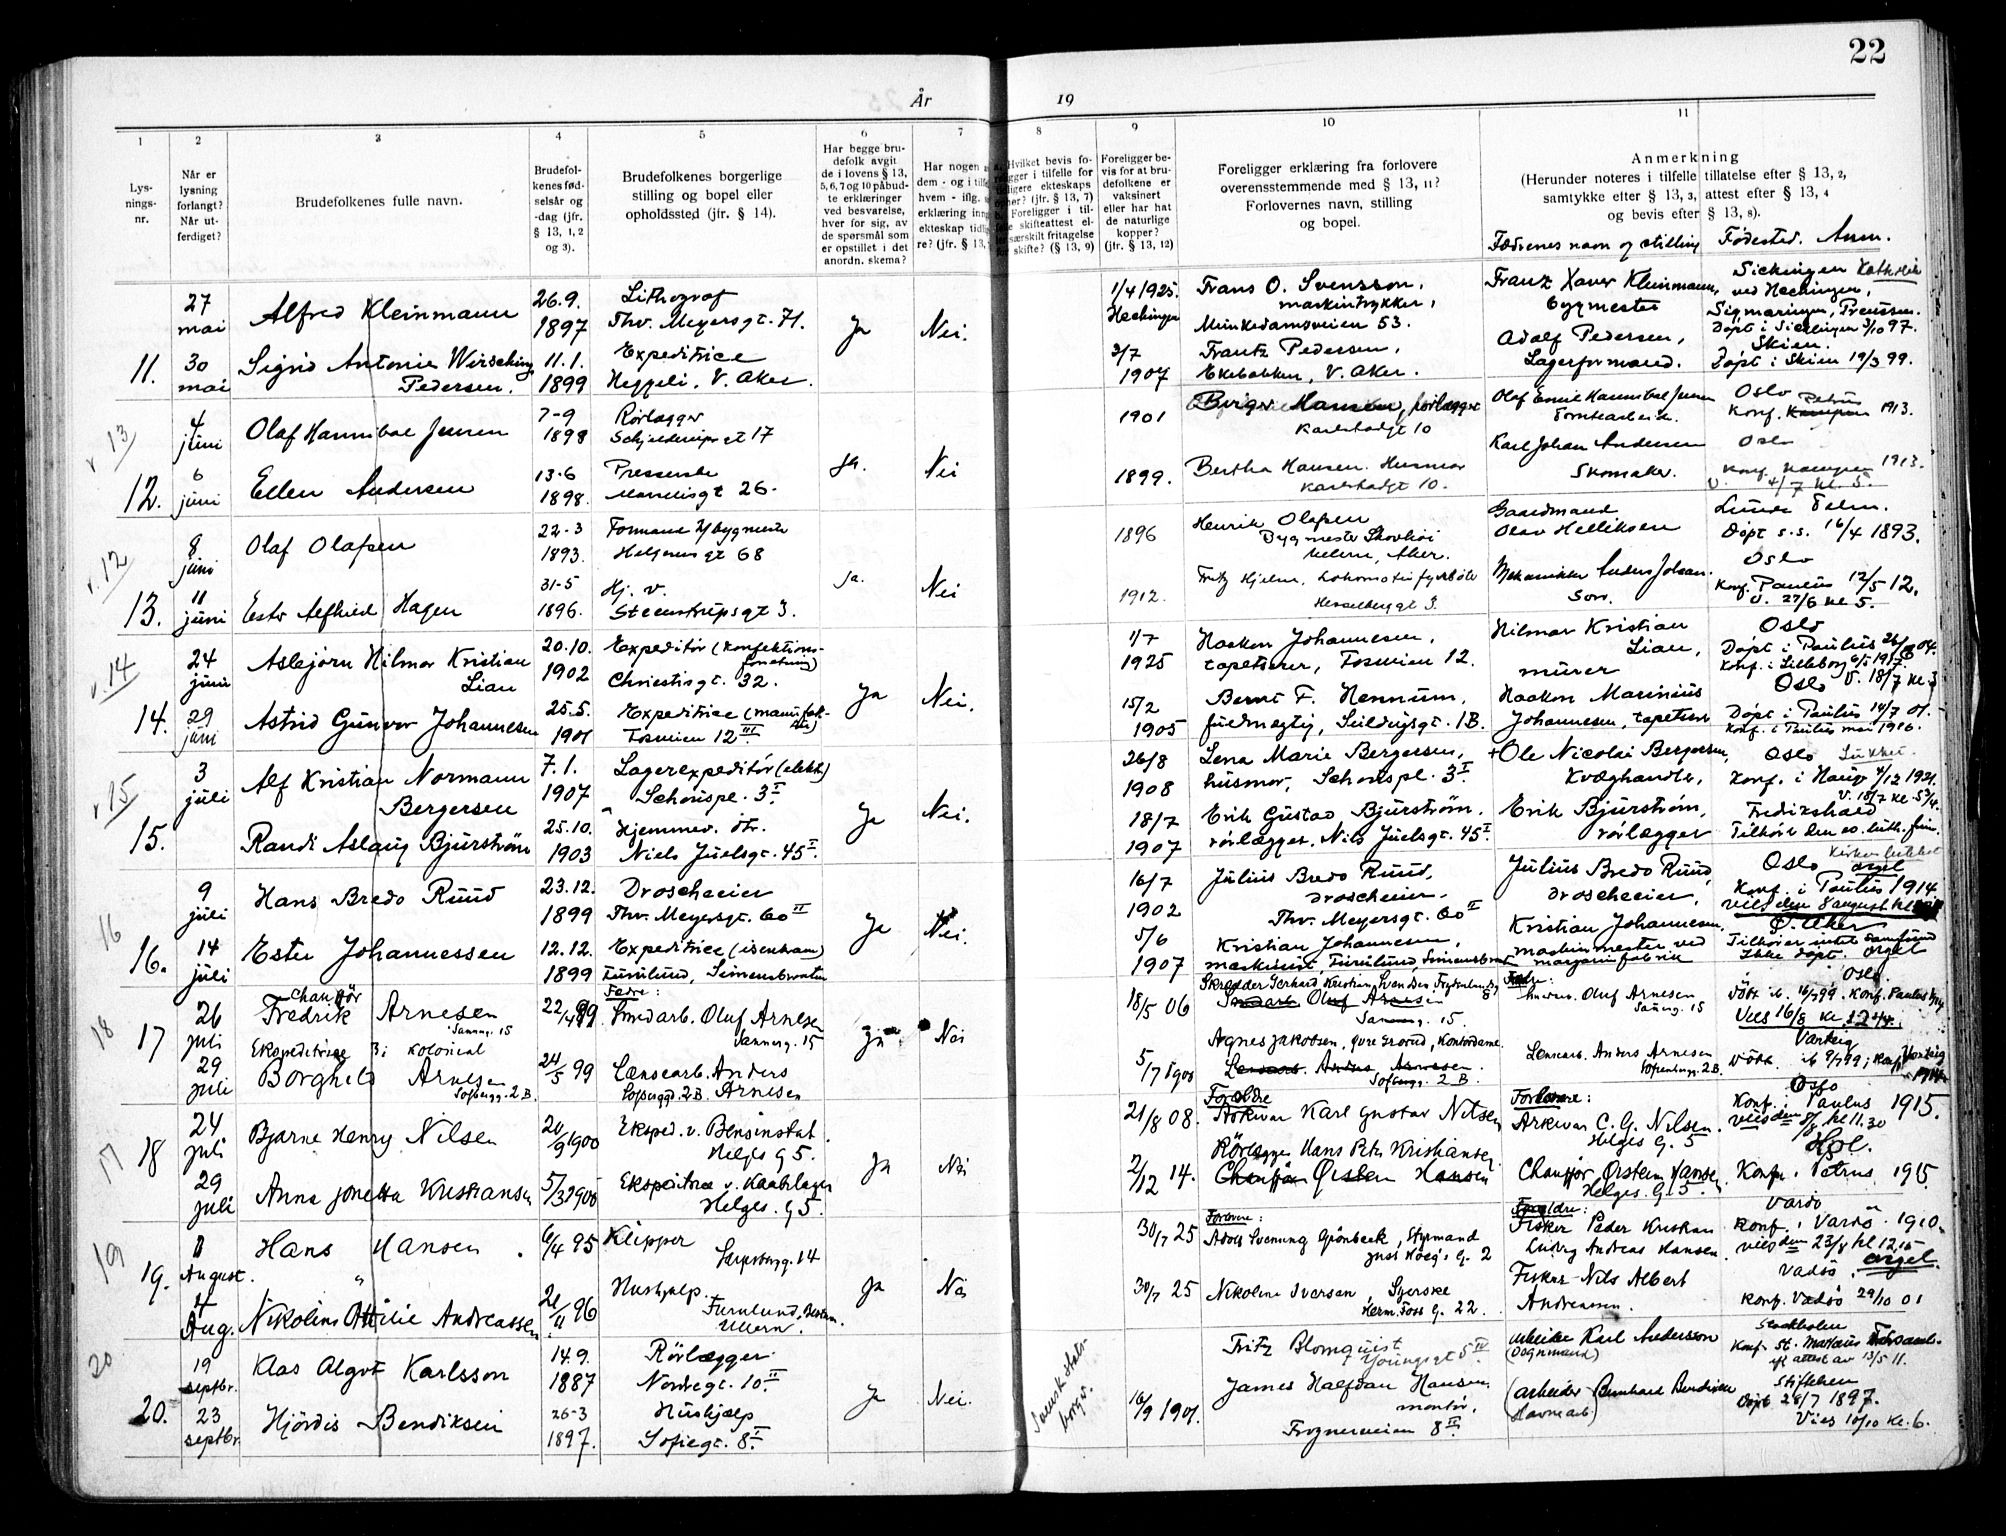 22
År 19
1 2 3 4 5 6 7 8 9 10 11
Lysnings-nr.
Når er lysning forlangt? Når utferdiget?
Brudefolkenes fulle navn.
Brudefolkenes fødselsår og -dag (jfr. § 13, 1, 2 og 3).
Brudefolkenes borgerlige stilling og bopel eller opholdssted (jfr. § 14).
Har begge brudefolk avgit de i lovens § 13, 5, 6, 7 og 10 påbudte erklæringer ved besvarelse, hver for sig, av de spørsmål som er opstillet i det anordn. skema?
Har nogen
dem - og i tilf
hvem - iflg.
erklæring inng
ekteskap tidlig
re? (jfr. § 13,
Hvilket bevis foreligger i tilfelle for tidligere ekteskaps
(jfr. § 13, 7)
Foreligger i til-
skifteattest el-
særskilt fritagelse
for skifte? (§ 13, 9)
Foreligger bevis for at brudefolkene er vaksinert eller har hat de naturlige kopper? (jfr. § 13, 12)
Foreligger erklæring fra forlovere overensstemmende med § 13, 11? Forlovernes navn, stilling og bopel.
Anmerkning
(Herunder noteres i tilfelle tillatelse efter § 13, 2,
samtykke efter § 13, 3, attest efter § 13, 4
og bevis efter § 13, 8).
Fædrenes navn og stilling Fødested. Anm.
11.
27 mai
Alfred Kleinmann
26.9. 1897
Lithograf
Thv. Meyersgt. 71.
Ja Nei.
1/4 1925. Hechingen
Frans O. Svensson,
maskintrykker,
Munkedamsveien 53.
Franz Xaver Kleinmann,
bygmester
Sickingen Katholik
ved Hechingen,
Sigmaringen, Preussen.
Døpt i Sickingen 3/10 97.
30 mai
Sigrid Antonie Wirsching
Pedersen.
11.1. 1899
Expeditrice
Heggeli, V. Aker.
3/7 1907
Frantz Pedersen,
Ekebakken, V. Aker.
Adolf Pedersen,
Lagerformand.
Skien.
Døpt i Skien 19/3 99.
v 13
12.
4 juni
Olaf Hannibal Jensen
7-9 1898
Rørlægger
Schjelderupsgt 17
Ja. Nei
1901
Birger Hansen, rørlægger
Karlstadgt 10
Olaf Emil Hannibal Jensen
Tomtearbeider.
Oslo
Konf. Kampen Petrus 1913.
6 juni
Ellen Andersen
13-6 1898.
Presserske
26.
1899.
Bertha Hansen. Husmor
Karlstadgt 10.
Karl Johan Andersen
Skomaker.
Oslo
Konf. Kampen 1913.
V. 4/7 kl. 5.
v. 12
13.
8 juni
Olaf Olafsen
22-3 1893.
Formand h/ bygmester
Helgesens gt 68
Ja. Nei
1896
Henrik Olafsen
Bygmester Skovhøi
Aker.
Gaardmand
Olav Helliksen
Lunde Telem.
Døpt s.s. 16/4 1893.
11 juni
Ester Alfhild Hagen
31-5 1896.
Hj. v.
Steenstrupsgt 3.
1912.
Fritz Hjelm, Lokomotivfyrbøter
Hesselbergs gt 3.
Mekaniker Anders Johan
Oslo
Konf. Paulus 12/5 12.
V. 27/6 kl 5.
v. 14
14.
24 juni
Asbjørn Hilmar Kristian
Lian
20.10. 1902
Expeditør (Konfektions-
forretning)
Christiesgt. 32.
Ja Nei.
1/7 1925
Haakon Johannesen,
tapetserer, Fosseveien 12.
Hilmar Kristian
Lian,
murer
Oslo
Døpt i Paulus 04.
Konf. i Lilleborg 1917.
V. 18/7 kl 3
29 juni
Astrid Gunvor Johannesen
25.5. 1901
Expeditrice (manufak-
tur)
Fosseveien 12 III.
15/2 1905
Bernt F. Hennum,
fuldmegtig, Seilduksgt. 1B.
Haakon Marinius
Johannesen, tapetserer
Oslo
Døpt i Paulus 14/7 01.
Konf. i Paulus mai 1916.
v 15
15.
3 juli
Alf Kristian Normann
Bergersen
7.1. 1907
Lagerexpeditør (elekt.)
Schouspl. 3 I.
Ja Nei.
26/8 1908
Lena Marie Bergersen,
husmor, Schouspl. 3 I.
+Ole Nicolai Bergersen,
Kvæghandler,
Oslo Lukket.
Konf. i Hauge 4/12 1921.
V. 18/7 kl 5 3/4.
Randi Aslaug Bjurstrøm
25.10. 1903
Hjemmev. dtr.
Niels Juelsgt. 45 I.
18/7 1907
Erik Gustad Bjurstrøm,
rørlægger, Nils Juelsgt. 45 I.
Erik Bjurstrøm,
rørlægger
Fredrikshald
Tilhører den ev. luth. frim.
16
16.
9 juli
Hans Bredo Ruud
23.12. 1899
Droscheeier
Thv. Meyersgt. 60 II
Ja Nei.
16/7 1902
Julius Bredo Ruud,
Droscheeier,
Thv. Meyersgt. 60 II
Julius Bredo Ruud,
Droscheeier,
Oslo
orgel
Konf. i Paulus 1914
vies den 8 august kl
14 juli
Ester Johannessen
12.12. 1899
Expeditrice (isenkram)
Furulund, Simensbraaten
5/6 1907
Kristian Johannesen,
maskinist, Furulund, Simensbraaten
Kristian Johannesen,
maskinmester ved
margarinfabrik
Ø. Aker
Tilhører intet samfund
Ikke døpt. orgel
18
17
26 juli
Chauffør
Fredrik Arnesen
Sannerg. 15
22/4 99
Fedre:
Smedarb. Oluf Arnesen
Sannerg. 15
Ja Nei
18/5 06
Skredder Gerhard Kristian Svendsen,
Smedarb. Oluf Arnesen
Sannerg. 15.
Fedre:
Oluf Arnesen
Sannerg. 15
Oslo.
Vies 16/8 kl 12 44.
29 juli
Ekspeditrise i kolonial
Borghild Arnesen
Sofiebergg. 2 B.
24/5 99
Lænsearb. Anders
Sofiebergg. 2 B. Arnesen
5/7 1900
Agnes Jakobsen, øvre Grorud, Kontordame
Lænsearb. Anders Arnesen
Sofiebergg. 2 B.
Lensearb. Anders Arnesen
Sofienbergg. 2B.
Varteig
17
18
24 juli
Bjarne Henry Nilsen
20/9 1900
Eksped. v. Bensinstat.
Helges G 5.
Ja Nei
21/8 08.
Foreldre
Arkivar Karl Gustav Nilsen
Forlovere:
Arkivar C. G. Nilsen.
Helges G. 5
Oslo
Konf. i Paulus 1915.
vies den 8/8 kl 11.30
29 juli
Anna Jonetta Kristiansen
5/3 1900
Ekspeditrice v.
Helges. G 5.
2/12 14.
Rørlegger Hans Petr. Kristiansen
Chauffør Øistein Hansen
Chauffør Øistein Hansen
Helges. G. 5.
Konf. i Petrus 1915.
19
19.
8 August.
Hans Hansen.
6/4 95
Klipper
Sarpsborgg. 14
Ja Nei
30/7 25
Forlovere:
Adolf Svenning Grønbeck, Styrmand
Jens G. 2
Foreldre:
Fisker Peder Kristian
Ludvig Andreas Hansen.
Vardø
Konf. i Vardø 1910.
vies den 23/8 kl 12.15
orgel.
4 Aug.
Nikoline Ottilie Andreassen
21/11 96
Hushjelp.
Furulund,
Ullern.
30/7 25
Nikoline Iversen, Syerske
Herm. Foss G. 22.
Fisker Nils Albert
Andreassen.
Vadsø.
Konf. Vadsø 29/10 01
20
20.
19 septbr.
Klas Algot Karlsson
14.9. 1887
Rørlægger
Nordregt. 10 II.
Ja Nei.
Svensk stats-
borger.
Fritz Blomquist
Youngsgt 5 IV
Arbeider Karl Andersson
(Dognmand)
Stockholm
Konf. St. Mattæus
attest av 13/5 11.
23 septbr.
Hjördis Bendiksen
26-3 1897.
Hushjælp
Sofiegt. 8 I.
16/9 1901.
James Halfdan Hansen
montør,
Frognerveien 8 II.
(Arbeider Bernhard Bendiksen
(Havnearb.)
Stiftelsen
Døpt 28/7 1897.
Vies 10/10 kl. 6.